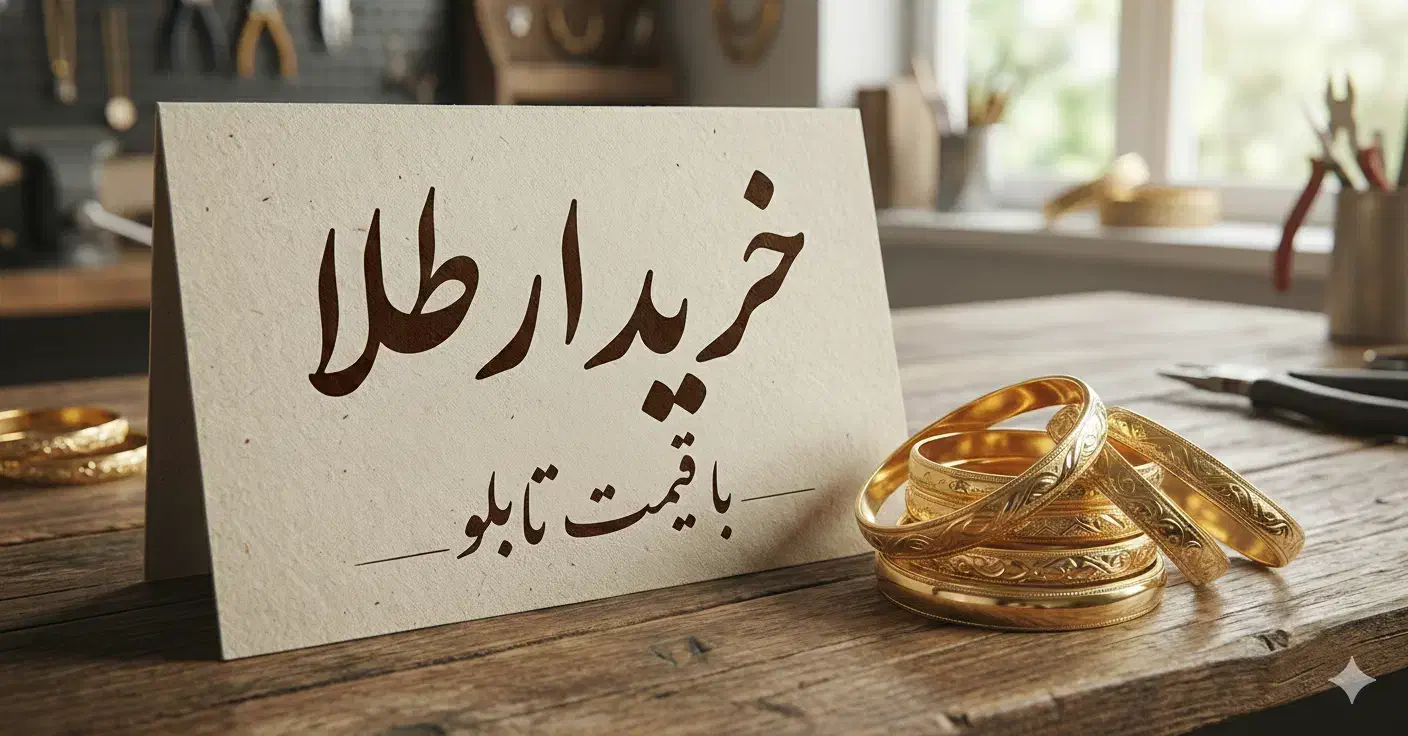 خریدار طلا
با قیمت تابلو